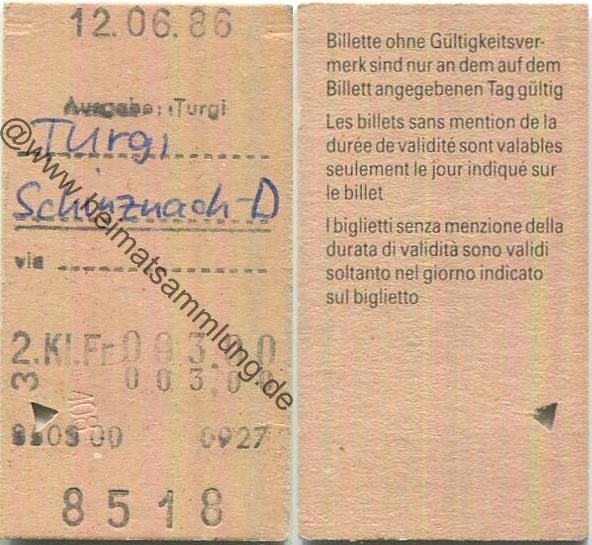 12.06.86
Ausgabe: Turgi
Turgi
Schinznach-D
via
2.Kl.Fr 003.00
3 003.00
00 0927
8518
@www.heimatsammlung.de
Billette ohne Gültigkeitsver-
merk sind nur an dem auf dem
Billett angegebenen Tag gültig
Les billets sans mention de la
durée de validité sont valables
seulement le jour indiqué sur
le billet
I biglietti senza menzione della
durata di validità sono validi
soltanto nel giorno indicato
sul biglietto